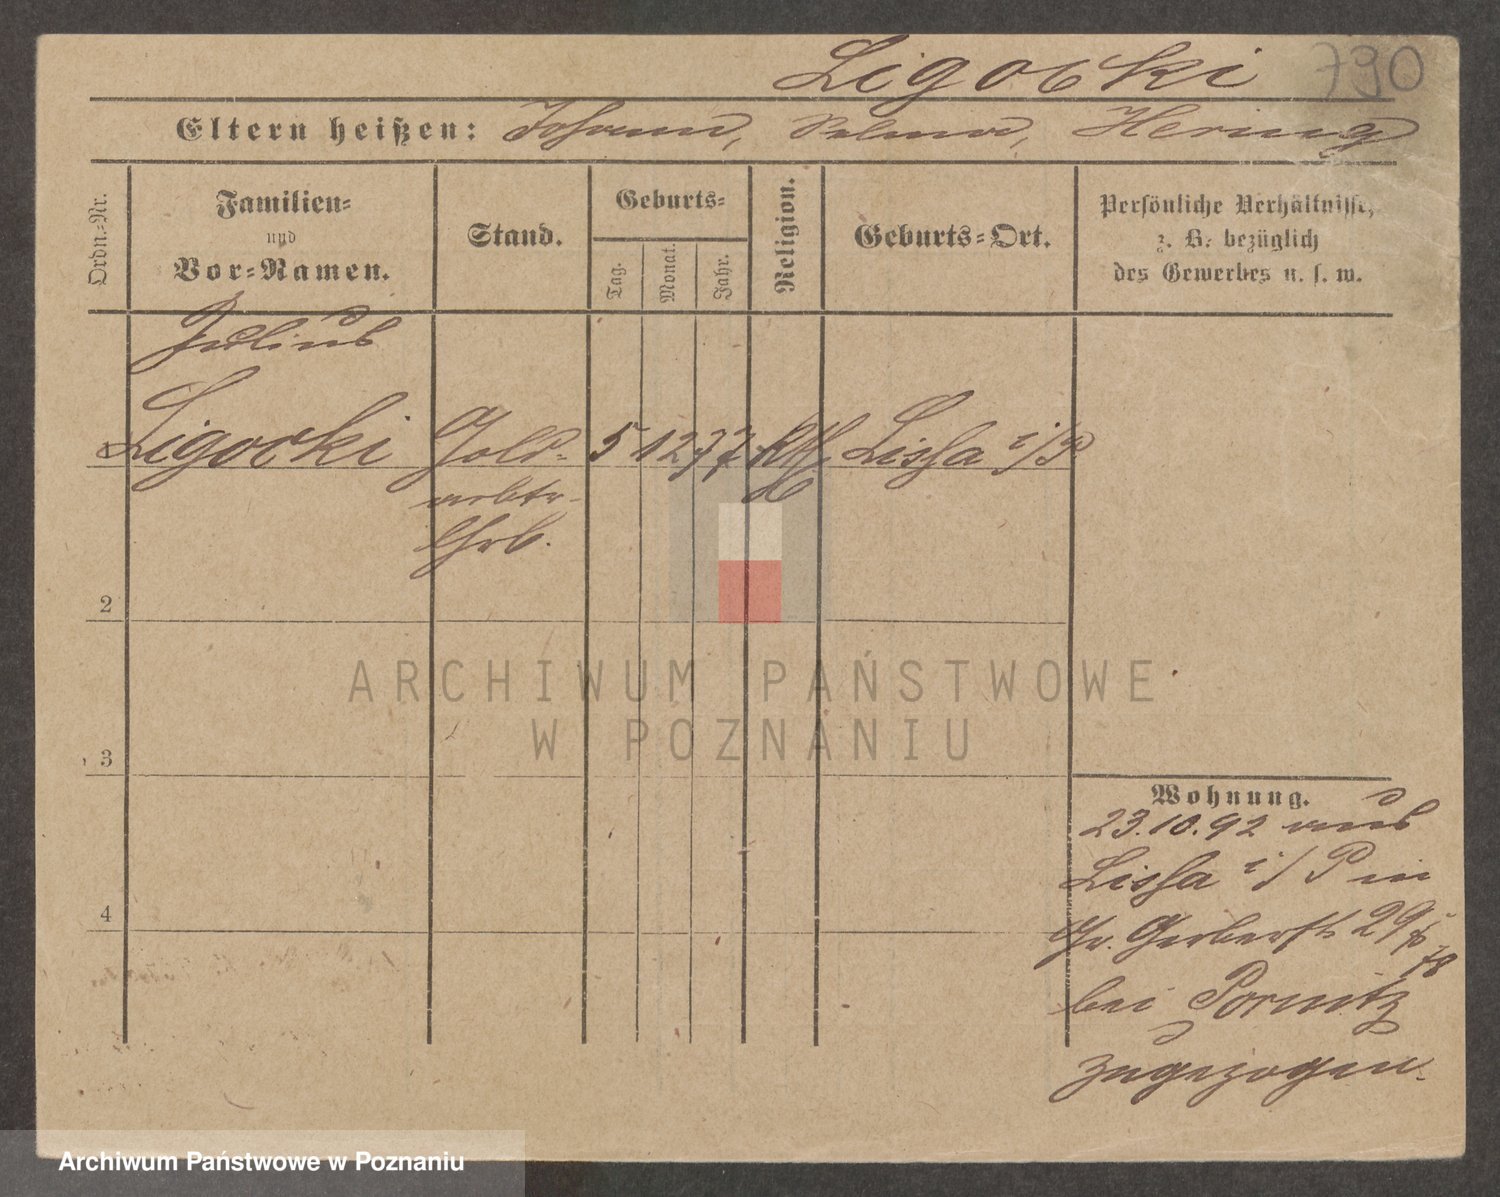 Ligocki 790
Eltern heißen: Johann, Selma, Hering
Ordn.-Nr.
Familien-
und
Vor-Namen.
Stand.
Geburts-
Tag.
Monat.
Jahr.
Religion.
Geburts-Ort.
Persönliche Verhältnisse,
z. B. bezüglich
des Gewerbes u. s. w.
Julius
Ligocki Gold- 5 12 77 kth Lissa i/P
arbtr.
2
3
4
Wohnung.
23.10.92 aus
Lissa i/P in
Gr. Gerberstr 29
bei Pornitz
zugezogen.
ARCHIWUM PAŃSTWOWE
W POZNANIU
Archiwum Państwowe w Poznaniu